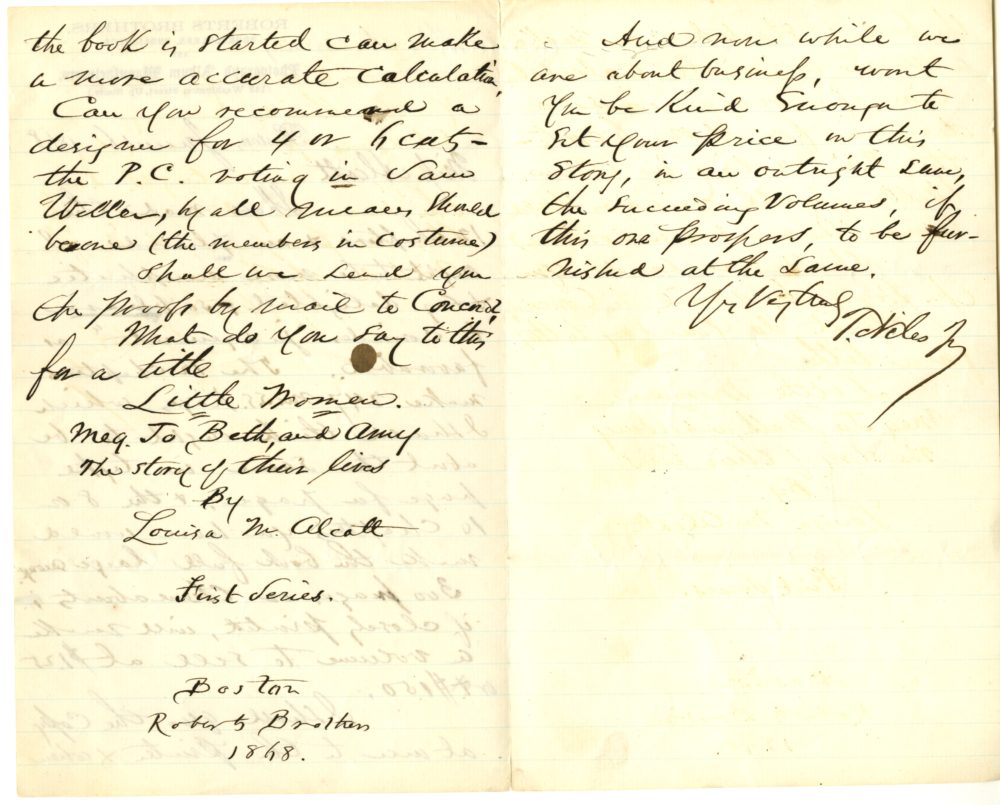 the book is started can make
a more accurate calculation,
Can you recommend a
designer for 4 or 6 cuts –
the P.C. voting in Sam
Weller, by all means should
be one (the members in costume)
Shall we send you
the proofs by mail to Concord,
What do you say to this
for a title
Little Women.
Meg. Jo, Beth, and Amy
The story of their lives
By
Louisa M. Alcott
First Series.
Boston
Roberts Brothers
1868.
And now while we
are about business, wont
you be kind enough to
set your price on this
Story, in an outright sum,
the succeeding Volumes, if
this one prospers, to be fur-
nished at the same.
Yrs
T. Niles Jr
ROBERTS BROTHERS